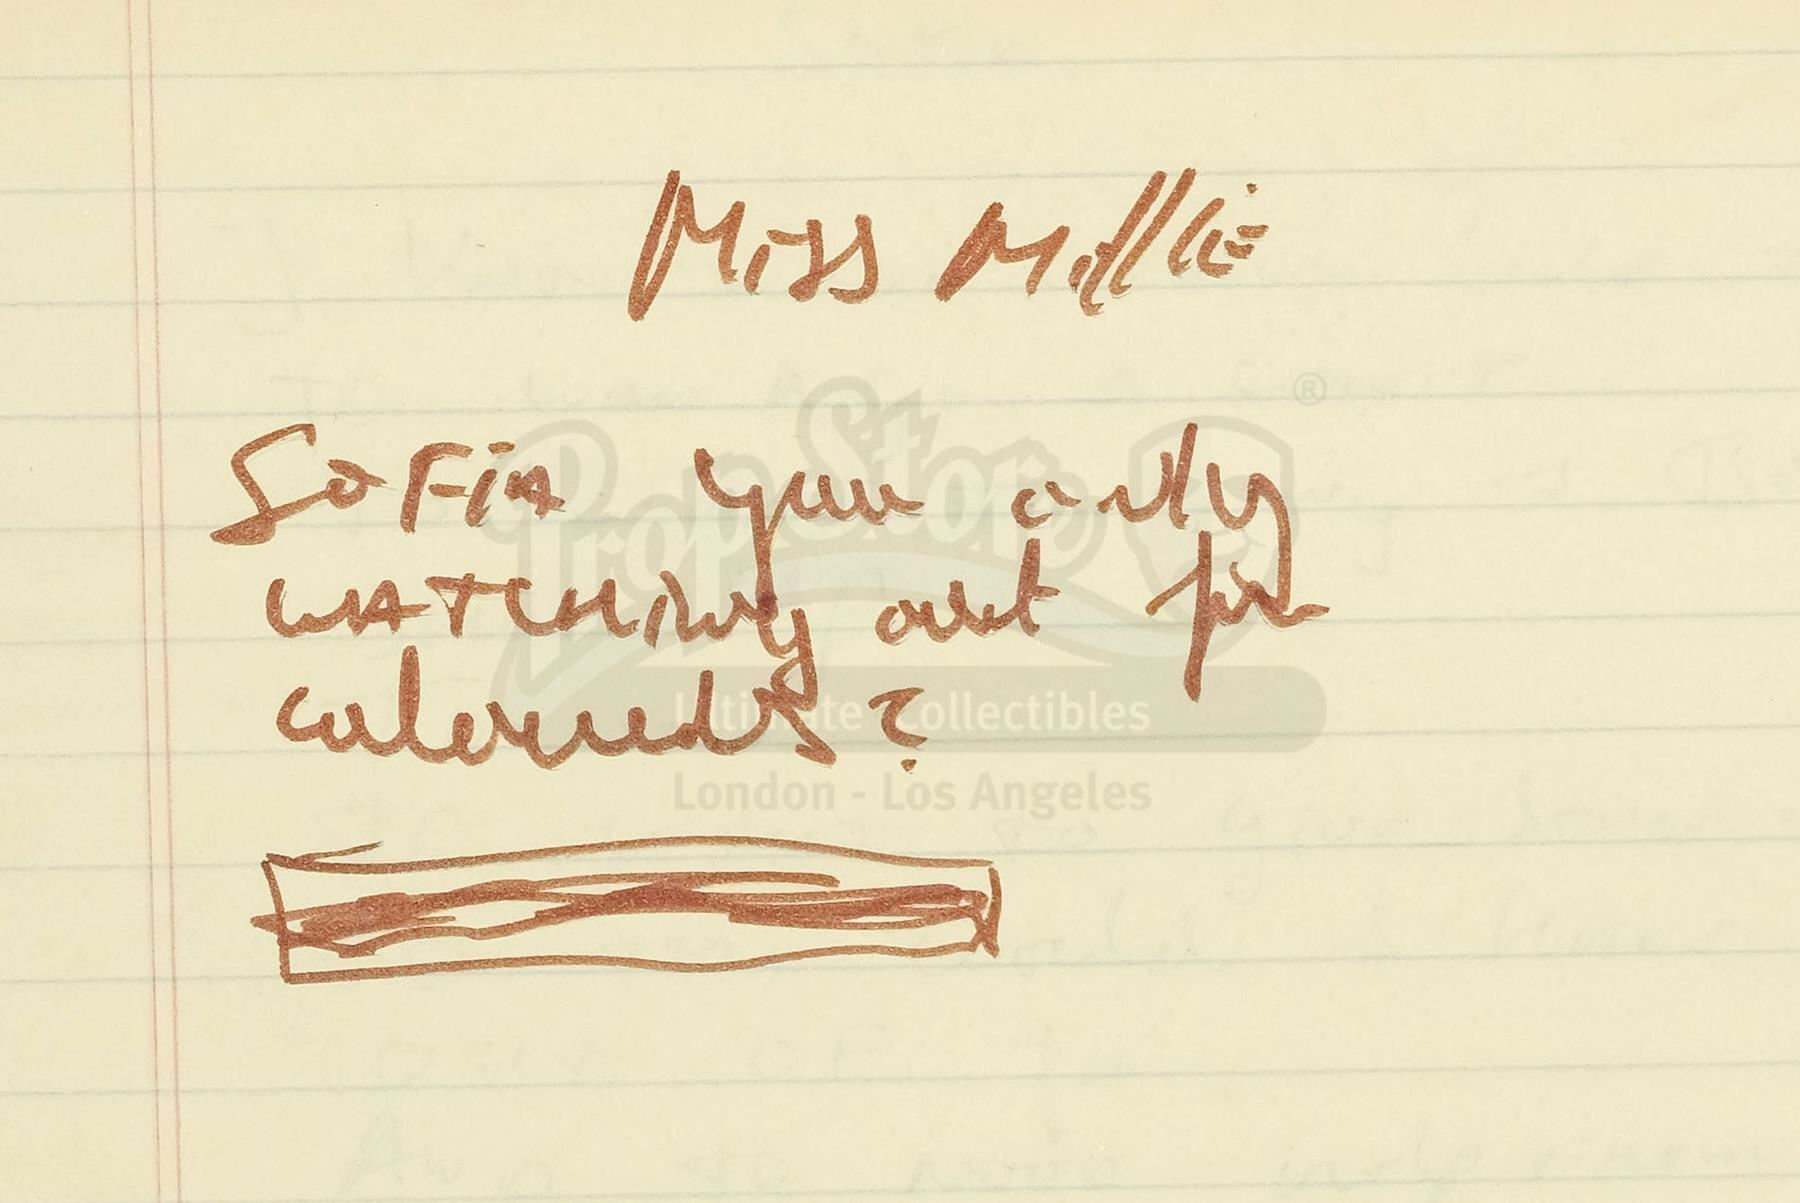 Miss Millie
Sofia you only
watching out for
coloreds?
Prop Store ®
Ultimate Collectibles
London - Los Angeles